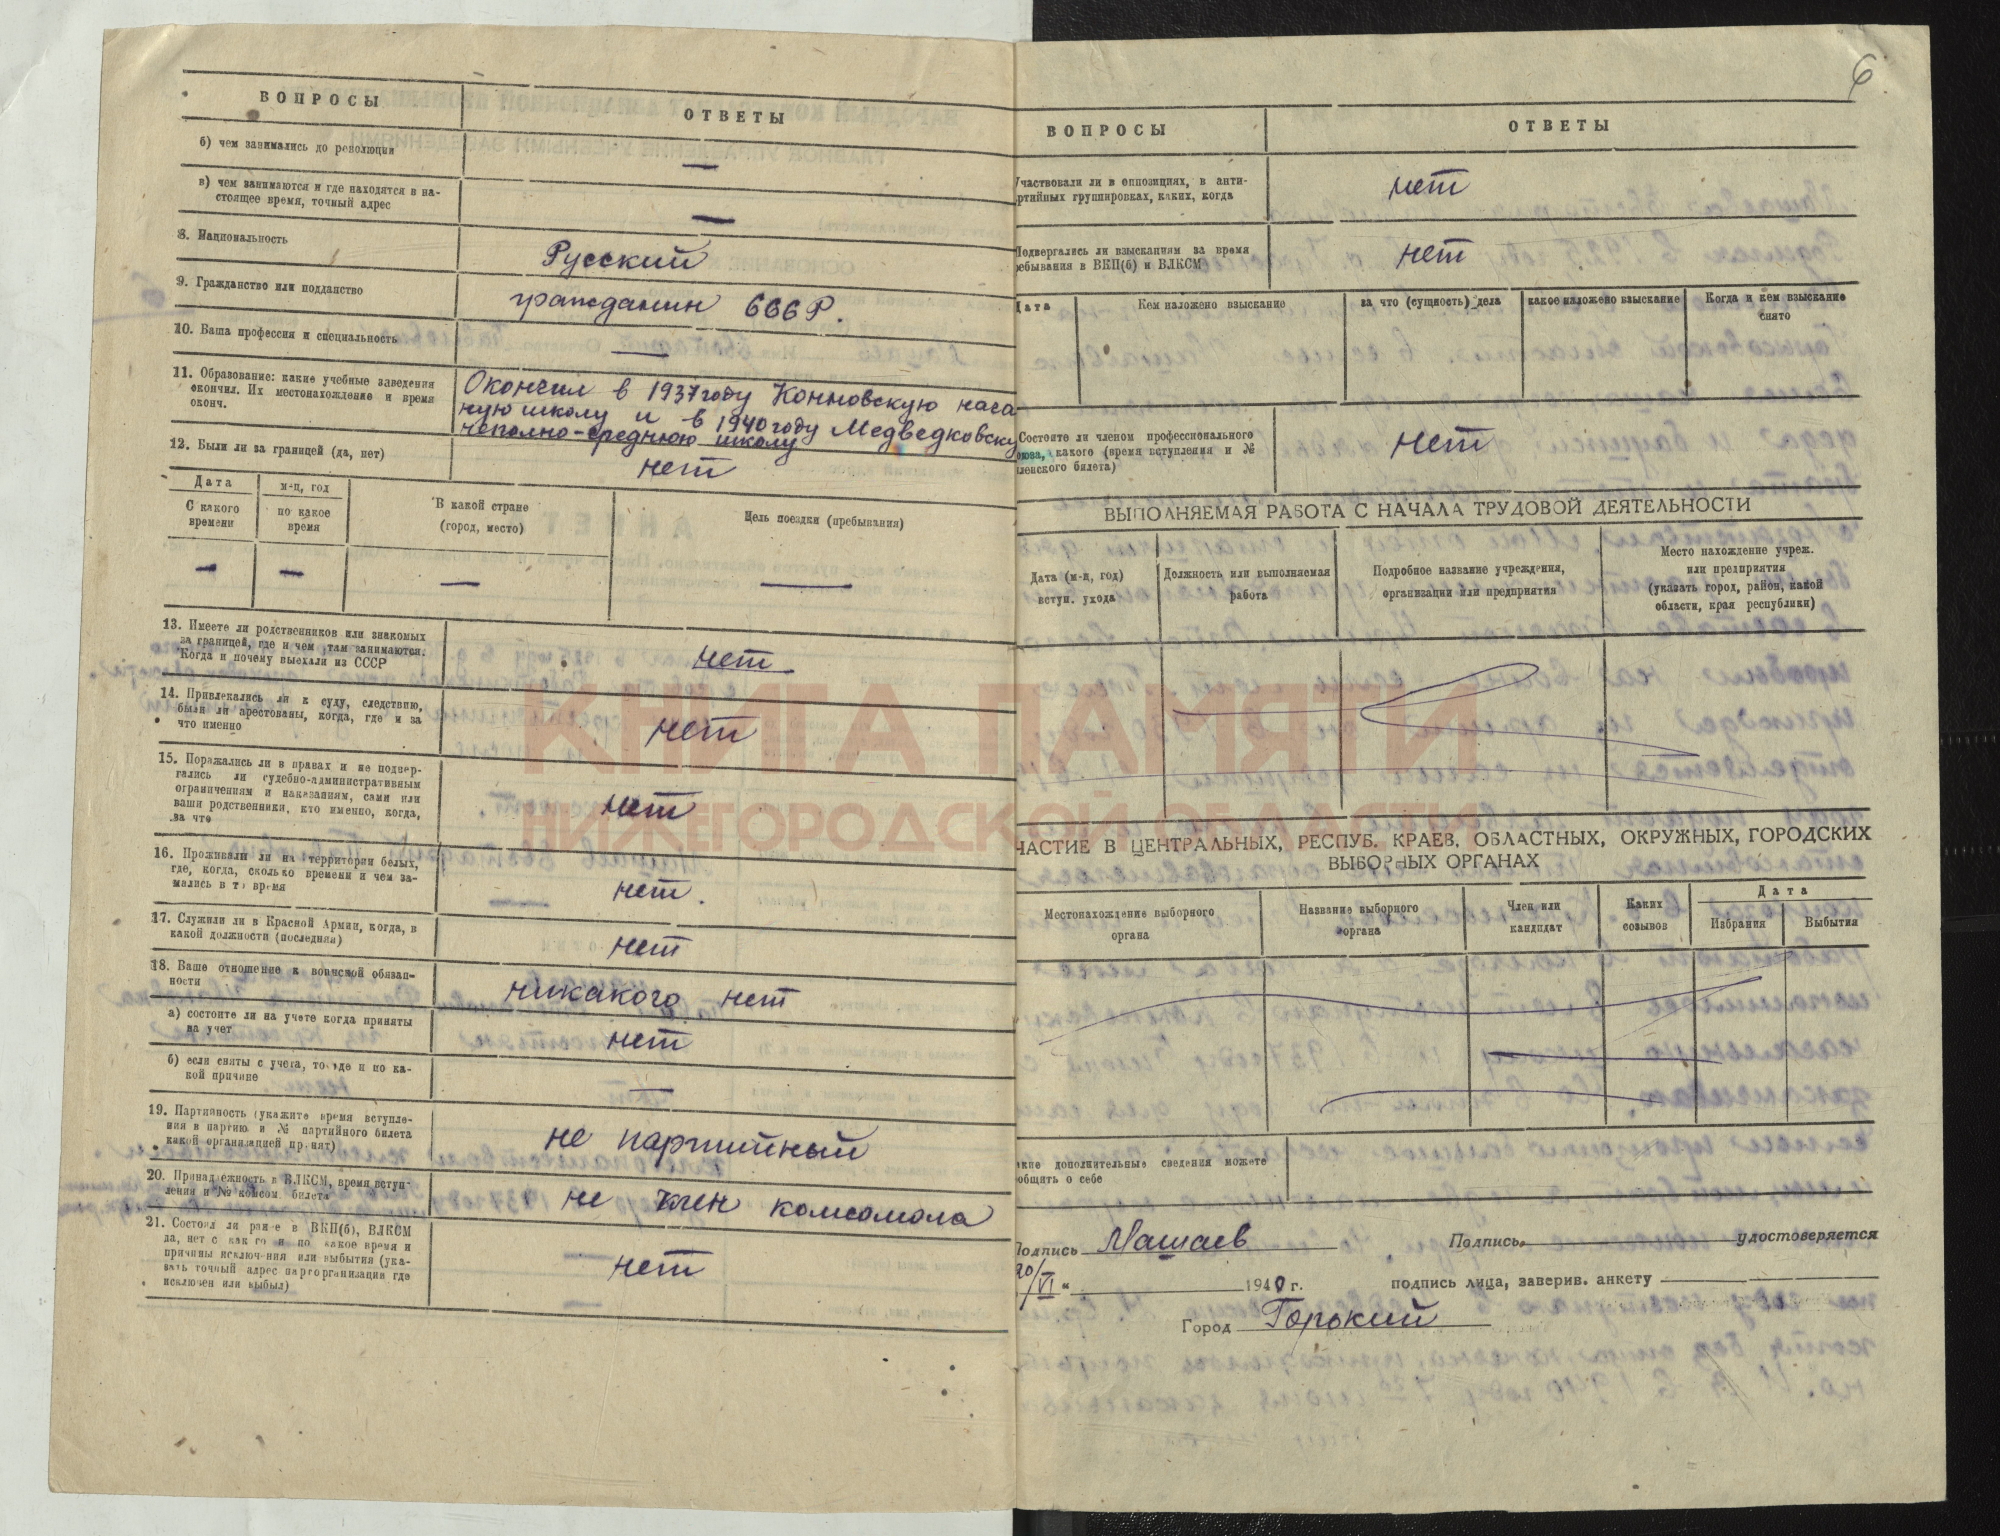 ВОПРОСЫ
ОТВЕТЫ
б) чем занимались до революции
—
в) чем занимаются и где находятся в на-
стоящее время, точный адрес
—
8. Национальность
Русский
9. Гражданство или подданство
гражданин СССР.
10. Ваша профессия и специальность
—
11. Образование: какие учебные заведения
окончил. Их местонахождение и время
оконч.
Окончил в 1937 году Конновскую нача
ную школу и в 1940 году Медведковску
неполно-среднюю школу
12. Были ли за границей (да, нет)
нет
Дата
м-ц, год
С какого
времени
по какое
время
В какой стране
(город, место)
Цель поездки (пребывания)
— — — —
13. Имеете ли родственников или знакомых
за границей, где и чем там занимаются.
Когда и почему выехали из СССР
нет
14. Привлекались ли к суду, следствию,
были ли арестованы, когда, где и за
что именно
нет
15. Поражались ли в правах и не подвер-
гались ли судебно-административным
ограничениям и наказаниям, сами или
ваши родственники, кто именно, когда,
за что
нет
16. Проживали ли на территории белых,
где, когда, сколько времени и чем за-
мались в то время
нет.
17. Служили ли в Красной Армии, когда, в
какой должности (последняя)
нет
18. Ваше отношение к воинской обязан-
ности
никакого нет
а) состоите ли на учете когда приняты
на учет
нет
б) если сняты с учета, то где и по ка-
кой причине
—
19. Партийность (укажите время вступле-
ния в партию и № партийного билета
какой организацией принят)
не партийный
20. Принадлежность к ВЛКСМ, время вступ-
ления и № комсом. билета
не член комсомола
21. Состоял ли ранее в ВКП(б), ВЛКСМ
да, нет с какого и по какое время и
причины исключения или выбытия (ука-
зать точный адрес парторганизации где
исключен или выбыл)
нет
6
ВОПРОСЫ
ОТВЕТЫ
Участвовали ли в оппозициях, в анти-
ртийных группировках, каких, когда
нет
Подвергались ли взысканиям за время
ебывания в ВКП(б) и ВЛКСМ
нет
Дата
Кем наложено взыскание
за что (сущность) дела
какое наложено взыскание
Когда и кем взыскание
снято
Состоите ли членом профессионального
оюза, какого (время вступления и №
ленского билета)
нет
ВЫПОЛНЯЕМАЯ РАБОТА С НАЧАЛА ТРУДОВОЙ ДЕЯТЕЛЬНОСТИ
Дата (м-ц, год)
вступ. ухода
Должность или выполняемая
работа
Подробное название учреждения,
организации или предприятия
Место нахождение учреж.
или предприятия
(указать город, район, какой
области, края республики)
КНИГА ПАМЯТИ
НИЖЕГОРОДСКОЙ ОБЛАСТИ
ЧАСТИЕ В ЦЕНТРАЛЬНЫХ, РЕСПУБ. КРАЕВ, ОБЛАСТНЫХ, ОКРУЖНЫХ, ГОРОДСКИХ
ВЫБОРНЫХ ОРГАНАХ
Местонахождение выборного
органа
Название выборного
органа
Член или
кандидат
Каких
созывов
Дата
Избрания
Выбытия
акие дополнительные сведения можете
ообщить о себе
Подпись Машаев
Подпись удостоверяется
20/VI " 1940 г.
подпись лица, заверив. анкету
Город Горький